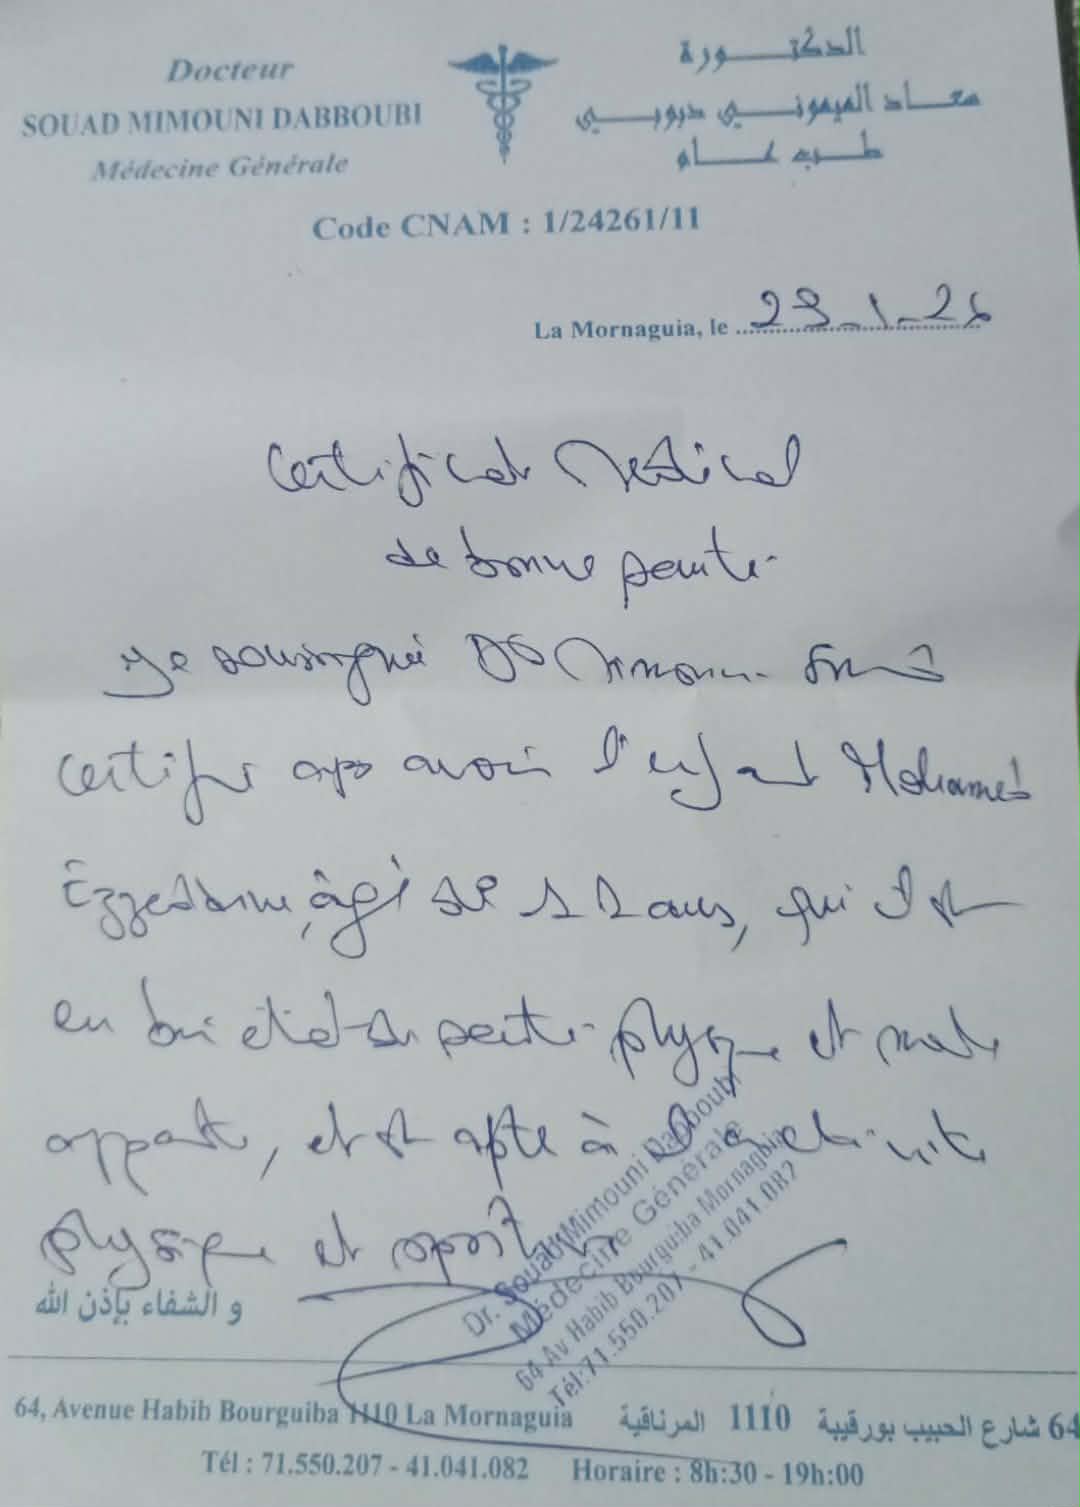 Docteur
SOUAD MIMOUNI DABBOUBI
Médecine Générale
الدكتورة
سعاد الميموني دبوبي
طب عام
Code CNAM : 1/24261/11
La Mornaguia, le 29-1-26
Certificat Médical
de bonne santé
Je soussigné Dr Mimouni Souad
certifie après avoir l'enfant Mohamed
Ezzeddine, âgé de 12 ans, qui est
en bon état de santé physique et mentale
apparente, et est apte à activité
physique et sportive
Dr. Souad Mimouni Dabboubi
Médecine Générale
64 Av Habib Bourguiba Mornaguia
Tél:71.550.207 - 41.041.082
و الشفاء بإذن الله
64, Avenue Habib Bourguiba 1110 La Mornaguia
64 شارع الحبيب بورقيبة 1110 المرناقية
Tél : 71.550.207 - 41.041.082 Horaire : 8h:30 - 19h:00